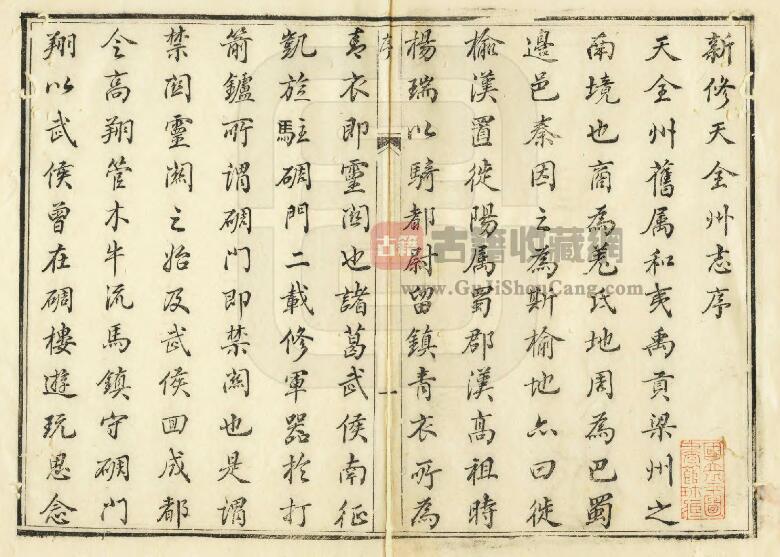 新修天全州志序
天全州舊属和夷禹貢梁州之
南境也商為羌氐地周為巴蜀
邊邑秦因之為斯榆地亦曰徙
榆漢置徙陽属蜀郡漢高祖時
楊瑞以騎都尉留鎮青衣所為
序
一
青衣即靈関也諸葛武侯南征
凱旋駐碉門二載修軍器於打
箭鑪所謂碉門即禁関也是謂
禁関靈関之始及武侯回成都
令高翔管木牛流馬鎮守碉門
翔以武侯曾在碉樓遊玩思念
古籍
古籍收藏網
www.GujiShouCang.com